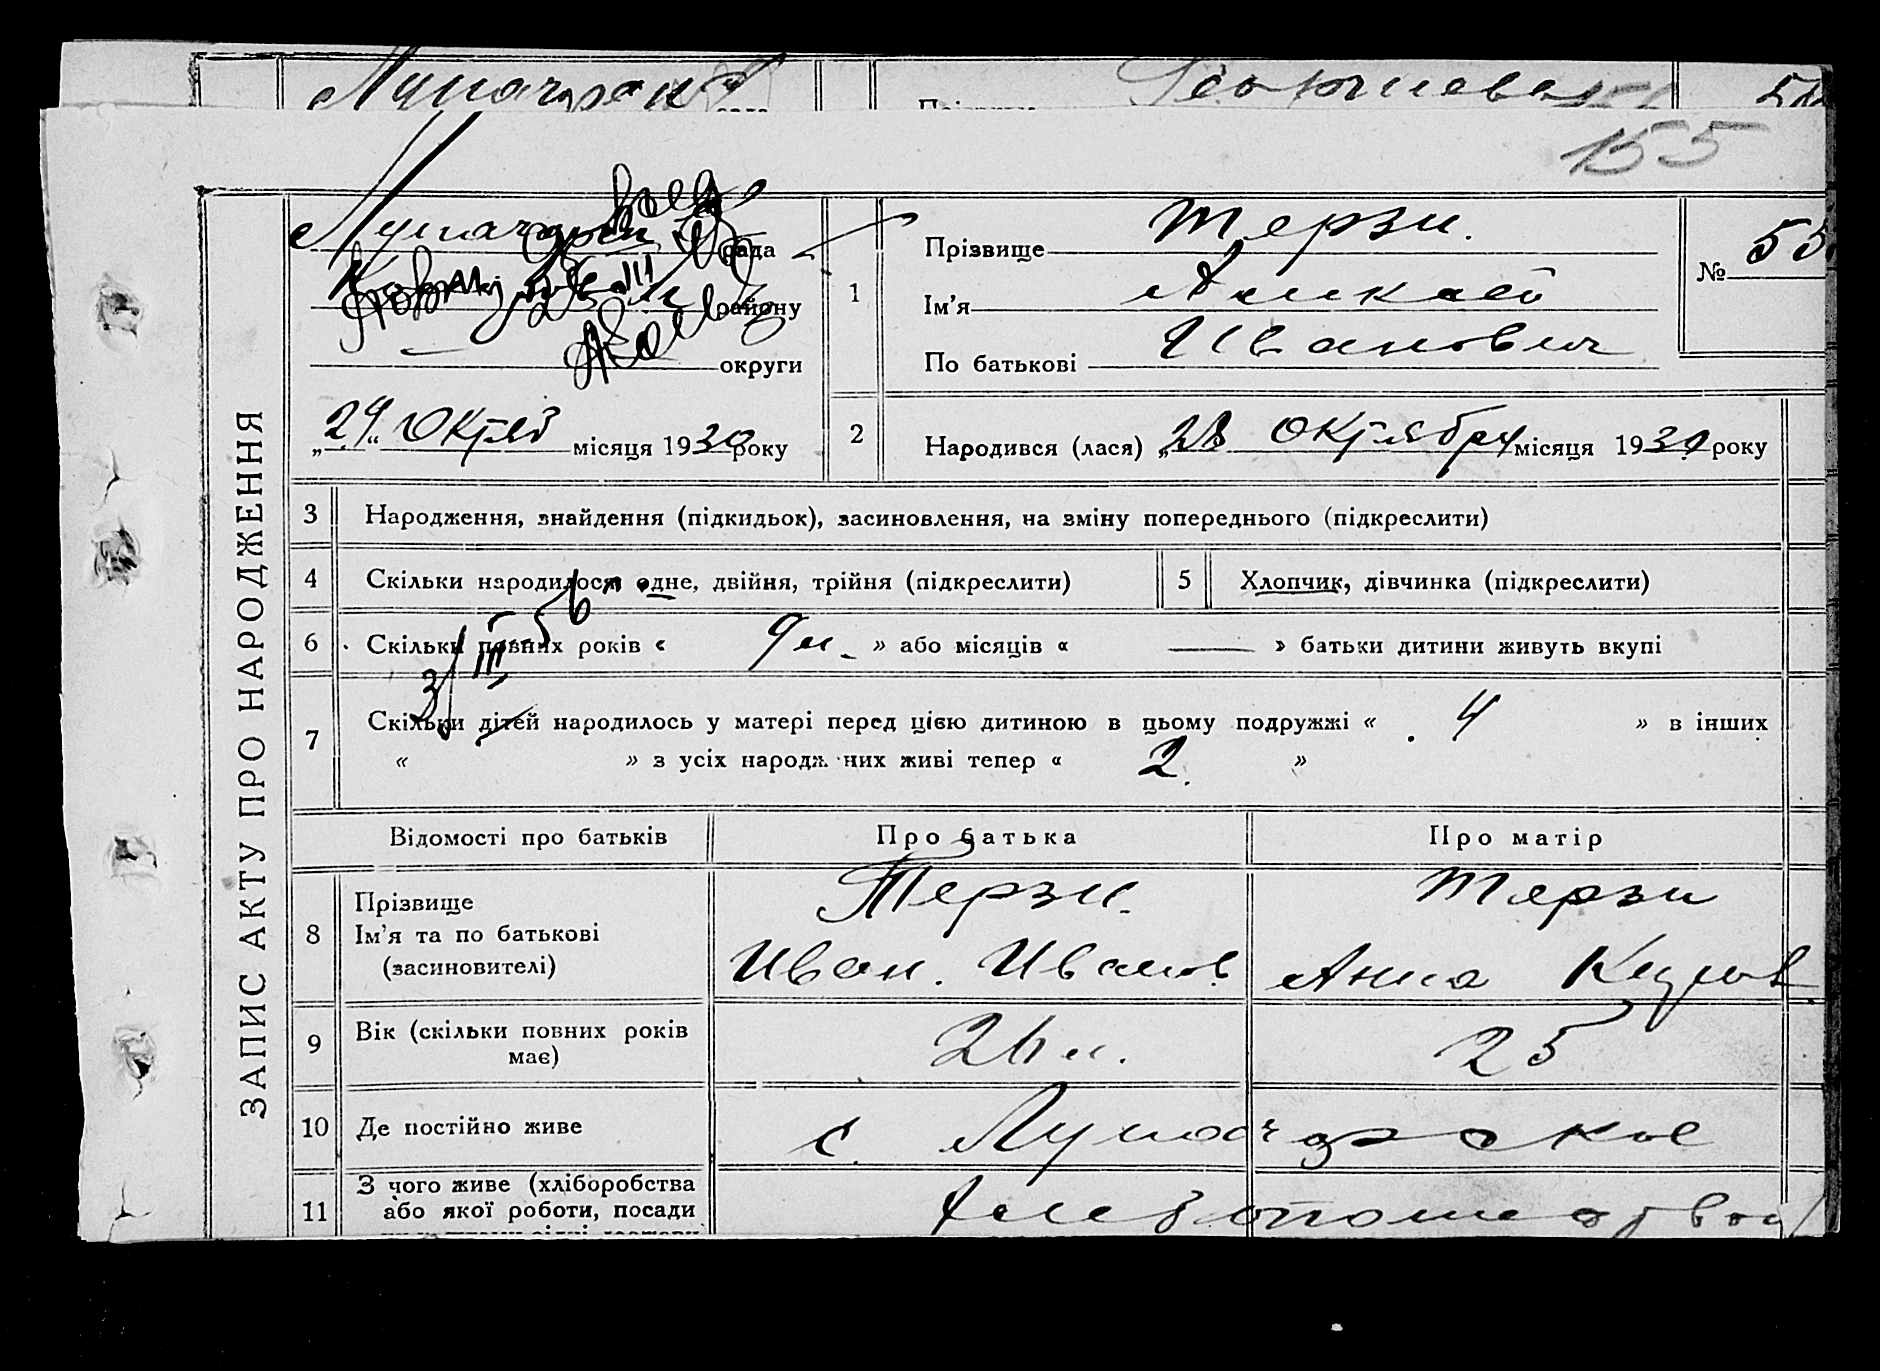 Луначарск
155
Луначарск рада
району
округи
„29“ Октяб місяця 1930 року
1
Прізвище Терзи.
Ім'я
По батькові Иванович
№ 55
2
Народився (лася) „28 октября місяця 1930 року
ЗАПИС АКТУ ПРО НАРОДЖЕННЯ
3 Народження, знайдення (підкидьок), засиновлення, на зміну попереднього (підкреслити)
4 Скільки народилося одне, двійня, трійня (підкреслити)
5 Хлопчик, дівчинка (підкреслити)
6 Скільки повних років « 9 л. » або місяців « — » батьки дитини живуть вкупі
3/III-56
7 Скільки дітей народилось у матері перед цією дитиною в цьому подружжі « 4 » в інших
« » з усіх народж них живі тепер « 2. »
Відомості про батьків Про батька Про матір
8 Прізвище
Ім'я та по батькові
(засиновителі)
Терзи. Терзи
Иван. Иванов. Анна
9 Вік (скільки повних років
має)
26 л. 25
10 Де постійно живе с. Луначарское
11 З чого живе (хліборобства
або якої роботи, посади